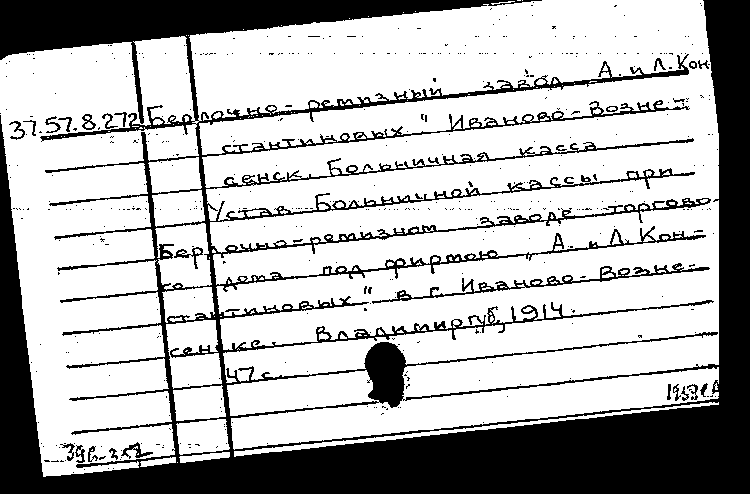 37.57.8.272 Бердочно-ремизный завод „А. и Л. Кон
стантиновых" Иваново-Возне-
сенск. Больничная касса
Устав Больничной кассы при
Бердочно-ремизном заводе торгово-
го дома под фирмою „А. и Л. Кон-
стантиновых" в г. Иваново-Возне-
сенске. Владимир губ, 1914.
47 с.